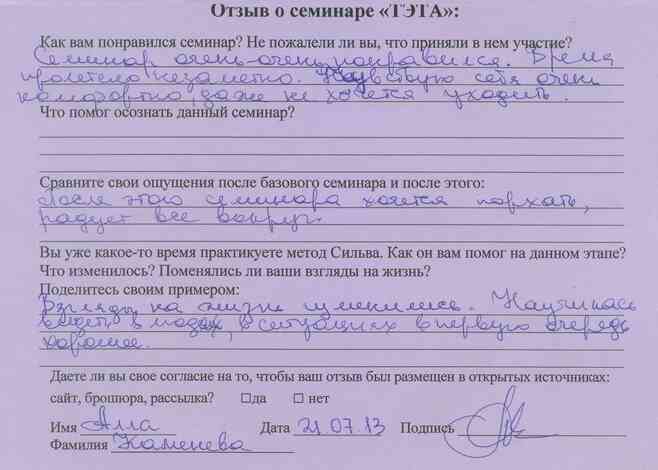 Отзыв о семинаре «ТЭТА»:
Как вам понравился семинар? Не пожалели ли вы, что приняли в нем участие?
Семинар очень-очень понравился. Время
пролетело незаметно. Чувствую себя очень
комфортно, даже не хочется уходить.
Что помог осознать данный семинар?
Сравните свои ощущения после базового семинара и после этого:
После этого семинара хочется порхать,
радует все вокруг.
Вы уже какое-то время практикуете метод Сильва. Как он вам помог на данном этапе?
Что изменилось? Поменялись ли ваши взгляды на жизнь?
Поделитесь своим примером:
Взгляды на жизнь изменились. Научилась
видеть в людях, в ситуациях в первую очередь
хорошее.
Даете ли вы свое согласие на то, чтобы ваш отзыв был размещен в открытых источниках:
сайт, брошюра, рассылка? □да □ нет
Имя Алла Дата 21.07.13 Подпись
Фамилия Каменева